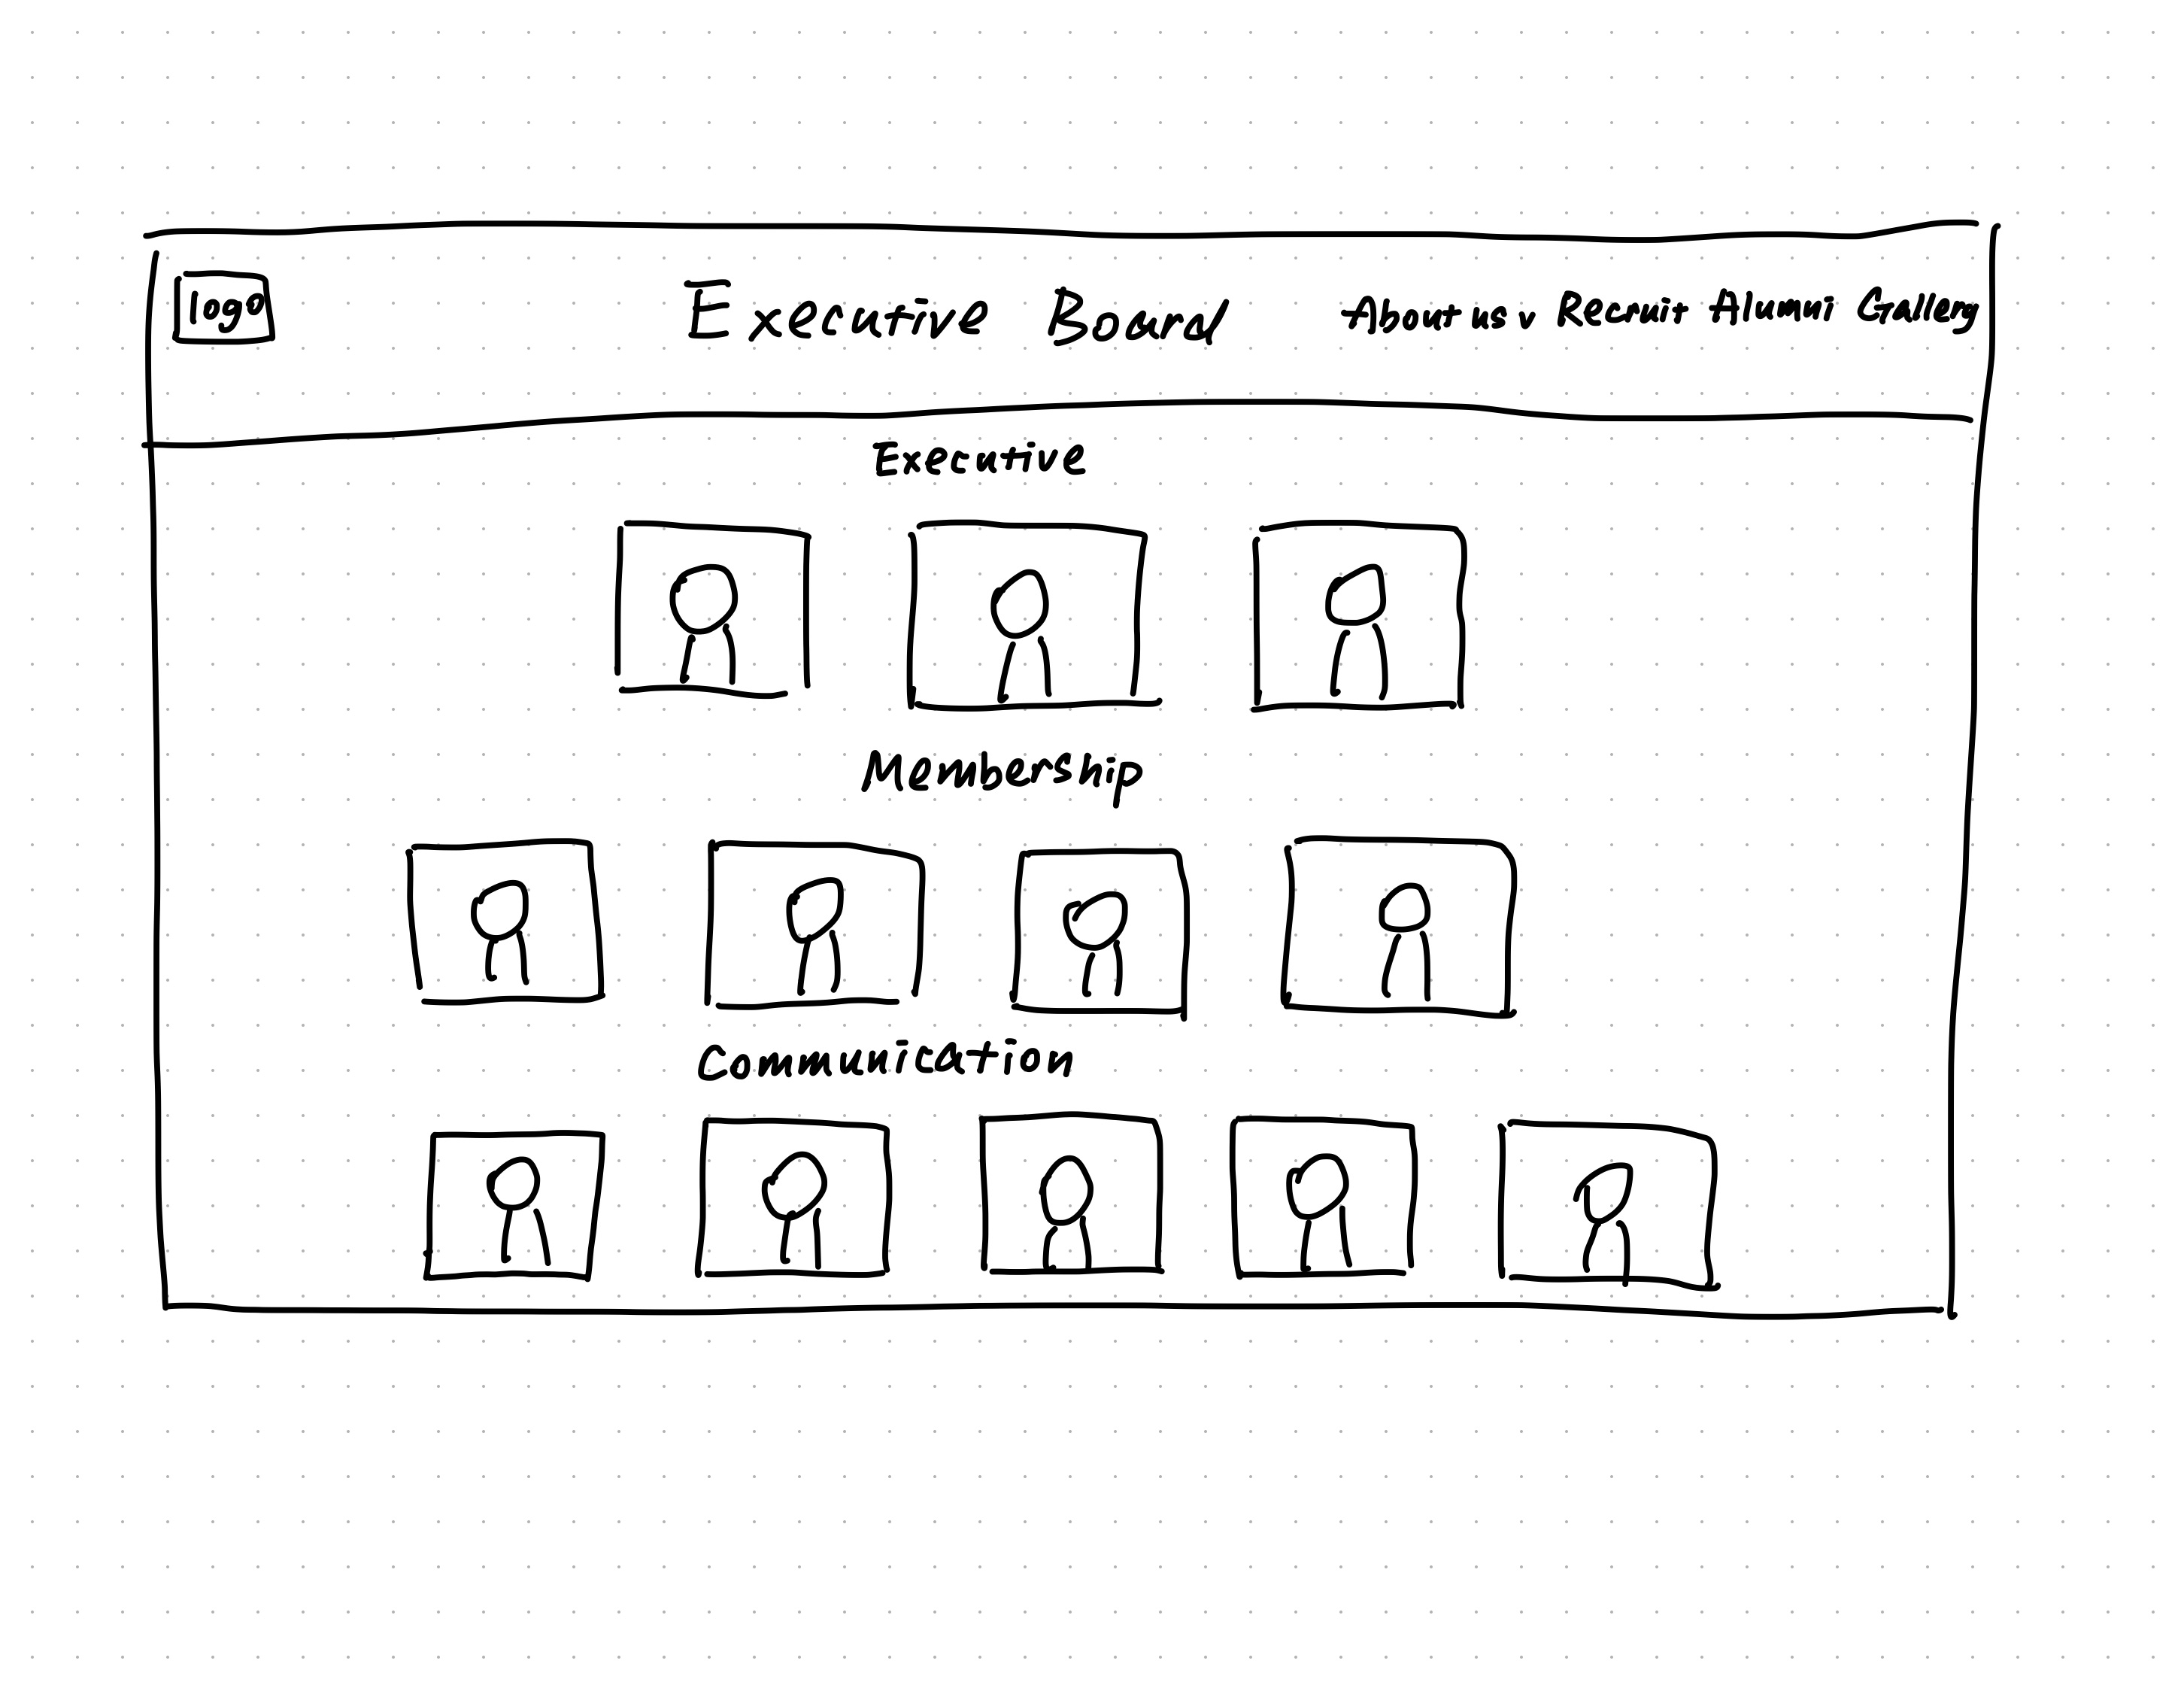 logo
Executive Board
About us v Recruit Alumni Gallery
Executive
Membership
Communication